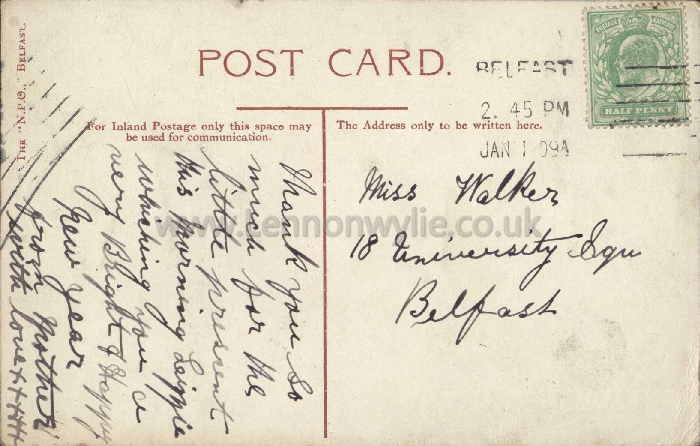 POST CARD.
THE "N.P.O.," BELFAST.
BELFAST
2. 45 PM
JAN 1 09A
HALF PENNY
For Inland Postage only this space may
be used for communication.
The Address only to be written here.
Thank you so
much for the
little present
this morning Lizzie
wishing you a
very Bright & Happy
New year
from Mother
with love xxxxxx
Miss Walker
18 University Squ
Belfast
www.lennonwylie.co.uk